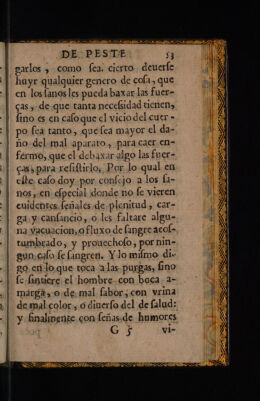 DE PESTE 53
garlos, como sea cierto deuerse
huyr qualquier genero de cosa, que
en los sanos les pueda baxar las fuer-
ças, de que tanta necessidad tienen,
sino es en caso que el vicio del cuer-
po sea tanto, que sea mayor el da-
ño del mal aparato, para caer en-
fermo, que el debaxar algo las fuer-
ças, para resistirlo. Por lo qual en
este caso doy por consejo a los sa-
nos, en especial donde no se vieren
euidentes señales de plenitud, car-
ga y cansancio, o les faltare algu-
na vacuacion, o fluxo de sangre acos-
tumbrado, y prouechoso, por nin-
gun caso se sangren. Y lo mismo di-
go en lo que toca a las purgas, sino
se sintiere el hombre con boca a-
marga, o de mal sabor, con vrina
de mal color, o diuerso del de salud:
y finalmente con señas de humores
G 5 vi-